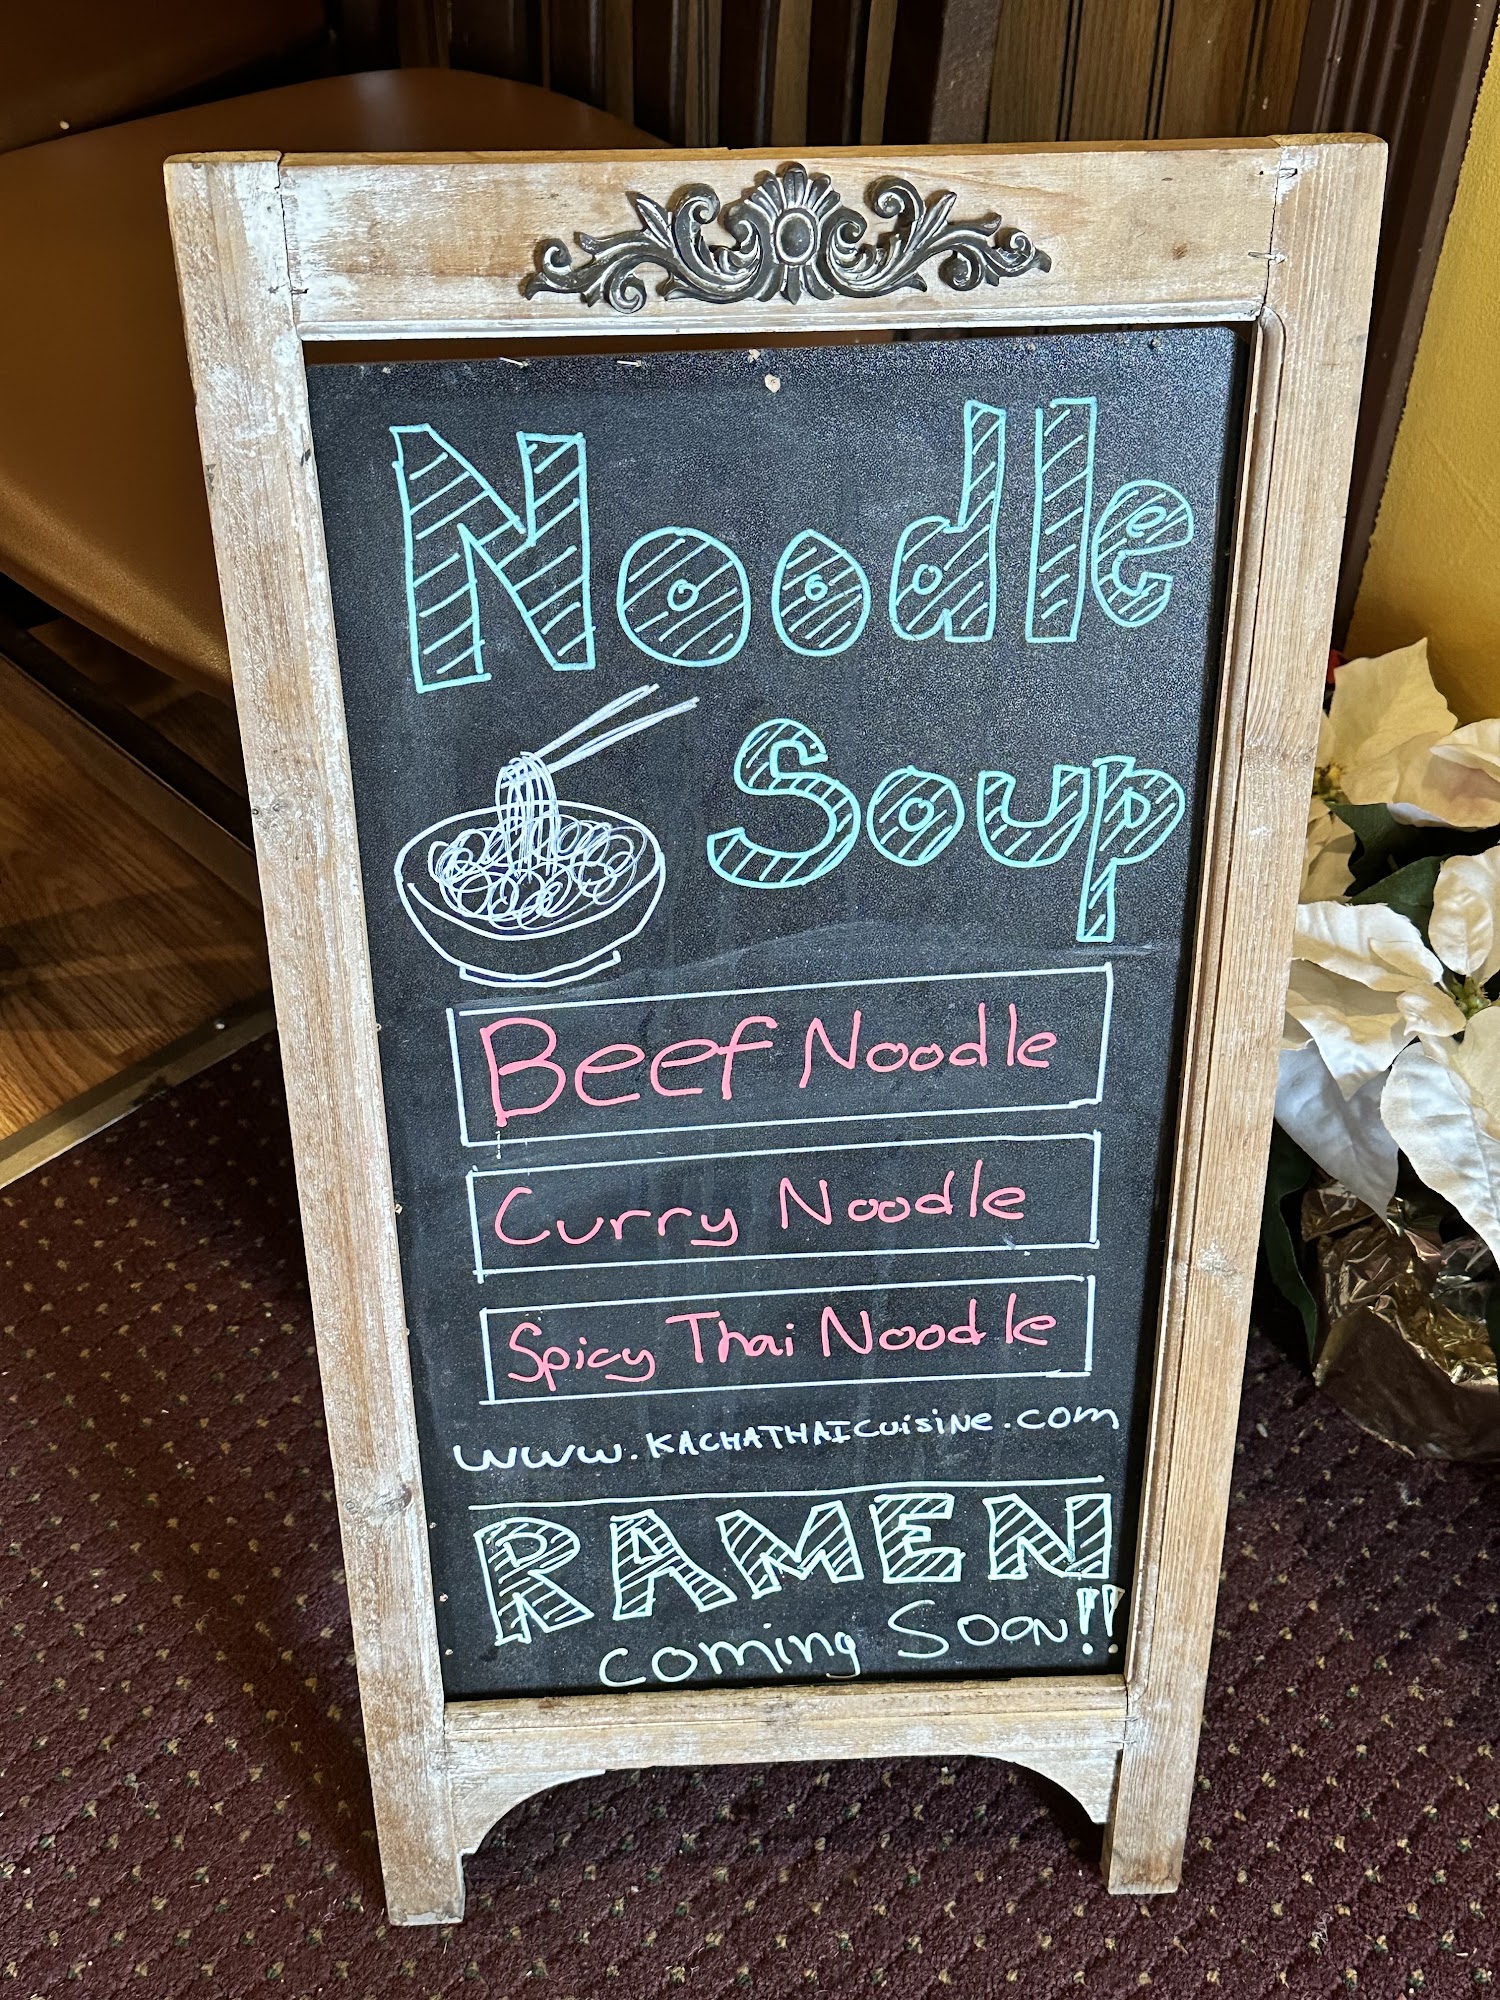 Noodle
Soup
Beef Noodle
Curry Noodle
Spicy Thai Noodle
www.KACHATHAICUisiNe.com
RAMEN
coming Soon!!